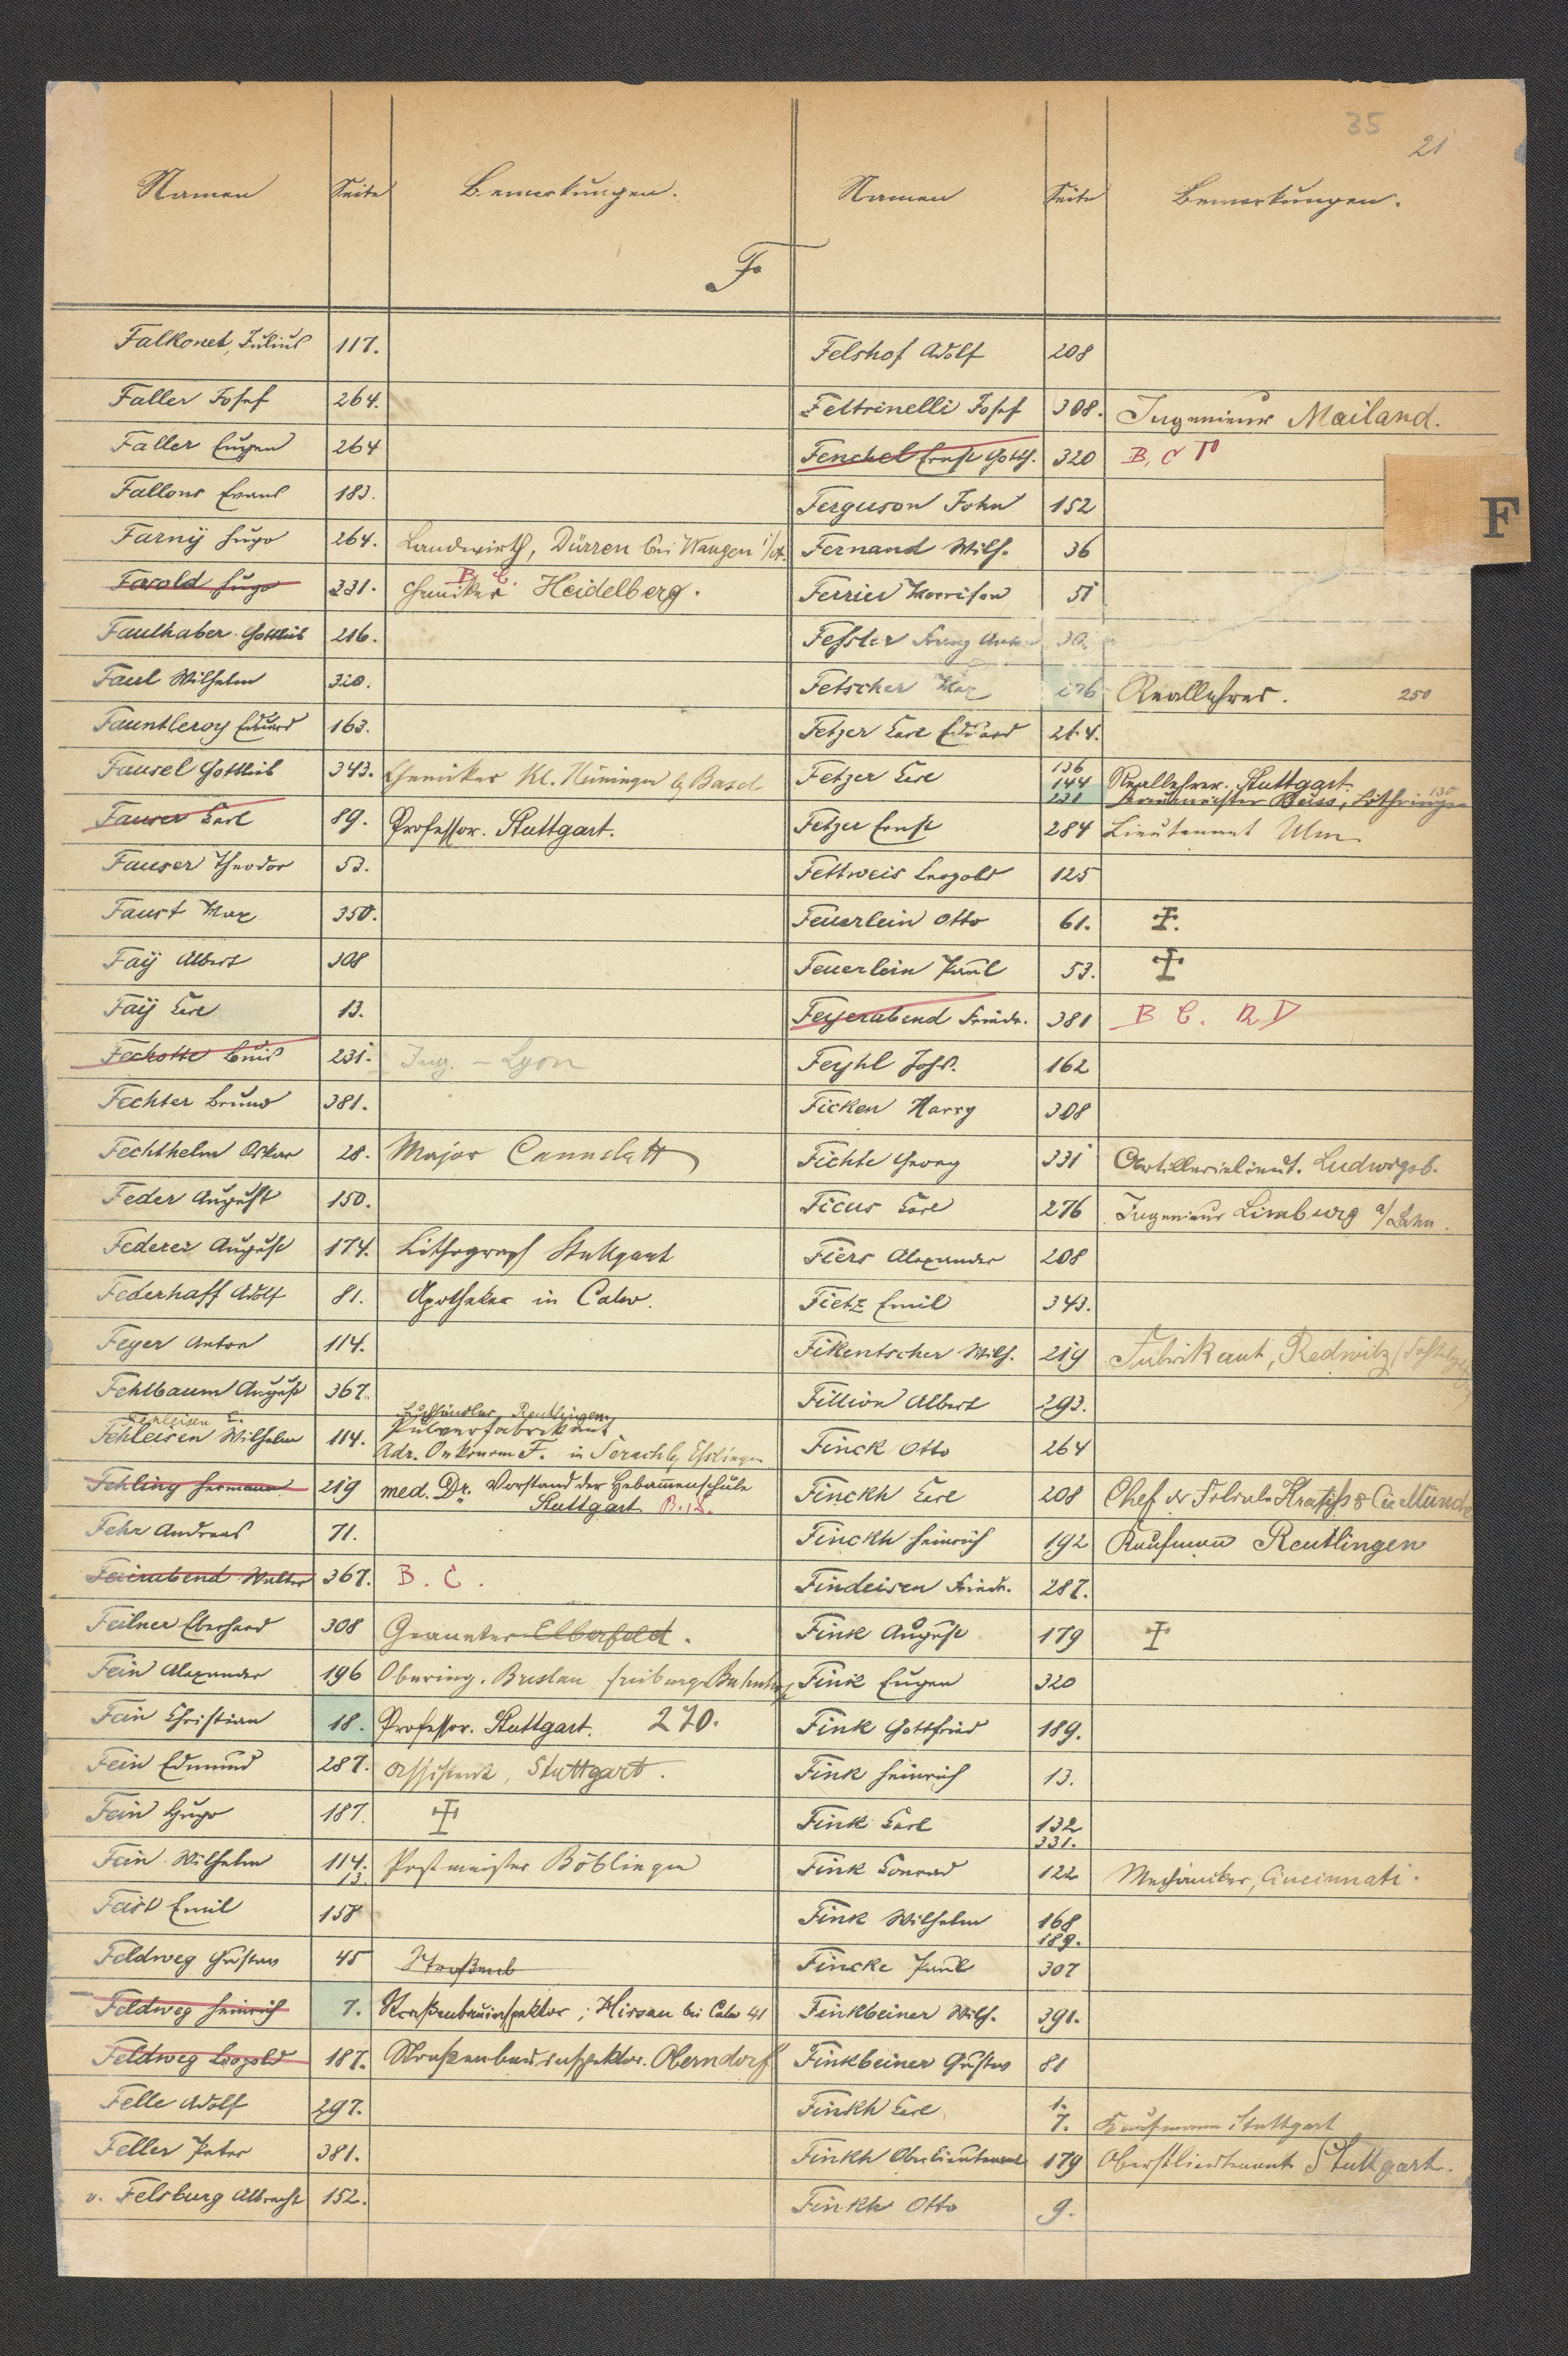 35
21
Namen Seite Bemerkungen. Namen Seite Bemerkungen.
F.
F
Falkonet, Julius 117.
Faller Josef 264.
Faller Eugen 264
Fallons Evans 183.
Farnÿ Hugo 264. Landwirth, Dürren bei Wangen i/A.
Farold Hugo 331. Chemiker Heidelberg. B C.
Faulhaber Gottlieb 216.
Faul Wilhelm 320.
Fauntleroy Eduard 163.
Fausel Gottlieb 343. Chemiker Kl. Hüningen b/ Basel
Fauser Carl 89. Professor. Stuttgart.
Fauser Theodor 53.
Faust Max 350.
Faÿ Albert 308
Faÿ Carl 13.
Fechotte Louis 231. Ing. – Lyon
Fechter Bruno 381.
Fechthelm Oskar 28. Major Cannstatt
Feder August 150.
Federer August 174. Lithograph Stuttgart
Federhaff Adolf 81. Apotheker in Calw.
Feyer Anton 114.
Fehlbaum August 367.
Fehleisen C. Buchhändler Reutlingen
Fehleisen Wilhelm 114. Pulverfabrikant
Adr. Oekonom F. in Serach b/ Esslingen
Fehling Hermann 219 med. Dr. Vorstand der Hebammenschule
Stuttgart B.,C.
Fehr Andreas 71.
Feierabend Walter 367. B. C.
Feilner Eberhard 308 Geometer Elberfeld.
Fein Alexander 196 Obering. Breslau freiburger Bahnhof
Fein Christian 18. Professor. Stuttgart. 270.
Fein Edmund 287. Assistent, Stuttgart.
Fein Hugo 187. ✝
Fein Wilhelm 114. 13. Postmeister Böblingen
Feist Emil 158
Feldweg Gustav 45 Straßenb
Feldweg Heinrich 7. Straßenbauinspektor, Hirsau bei Calw 41
Feldweg Leopold 187. Straßenbauinspektor. Oberndorf
Felle Adolf 297.
Feller Peter 381.
v. Felsburg Albrecht 152.
Felshof Adolf 208
Feltrinelli Josef 308. Ingenieur Mailand.
Fenchel Ernst Gotth. 320 B, C
Ferguson John 152
Fernand Wilh. 36
Ferrier Morrison 51
Fessler Franz Anton 30.
Fetscher Max 276 Reallehrer. 250
Fetzer Carl Eduard 264.
Fetzer Carl 136 144 231 Reallehrer. Stuttgart. 130
Fetzer Ernst 284 Lieutenant Ulm
Fettweis Leopold 125
Feuerlein Otto 61. ✝.
Feuerlein Paul 53. ✝
Feyerabend Friedr. 381 B C.
Feyhl Johs. 162
Ficken Harry 308
Fichte Georg 331 Artillerielieut. Ludwigsb.
Ficus Carl 276 Ingenieur Limburg a/Lahn.
Fiers Alexander 208
Fietz Emil 343.
Fikentscher Wilh. 219 Fabrikant, Redwitz
Fillion Albert 293.
Finck Otto 264
Finckh Carl 208 Chef der Filiale & Cie
Finckh Heinrich 192 Kaufmann Reutlingen
Findeisen Friedr. 287.
Fink August 179 ✝
Fink Eugen 320
Fink Gottfried 189.
Fink Heinrich 13.
Fink Carl 132 331.
Fink Conrad 122 Mechaniker, Cincinnati.
Fink Wilhelm 168 189.
Fincke Paul 307
Finkbeiner Wilh. 391.
Finkbeiner Gustav 81
Finkh Carl 1. 7. Kaufmann Stuttgart
Finkh Oberlieutenant 179 Oberstlieutenant Stuttgart.
Finkh Otto 9.